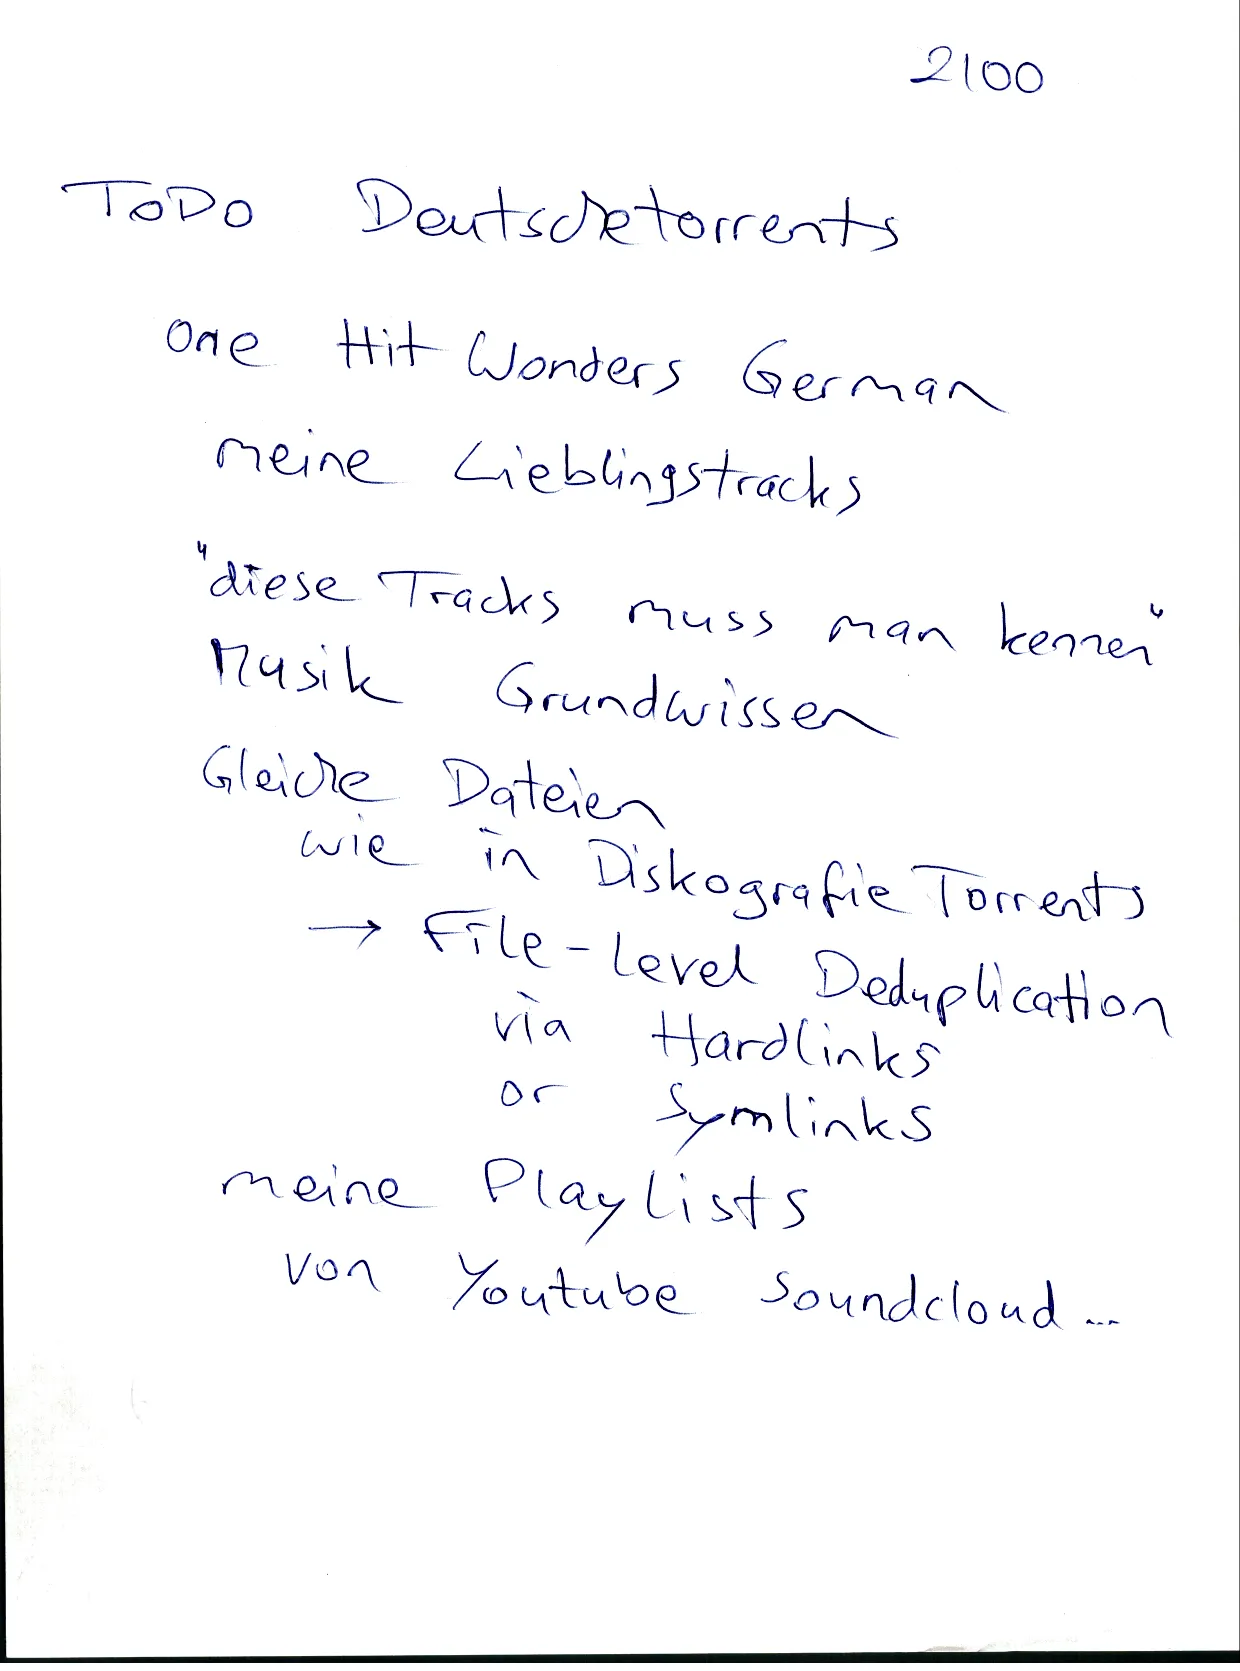 2100
ToDo Deutschetorrents
one Hit Wonders German
meine Lieblingstracks
"diese Tracks muss man kennen"
Musik Grundwissen
Gleiche Dateien
wie in Diskografie Torrents
→ File-Level Deduplication
via Hardlinks
or Symlinks
meine Playlists
von Youtube Soundcloud...